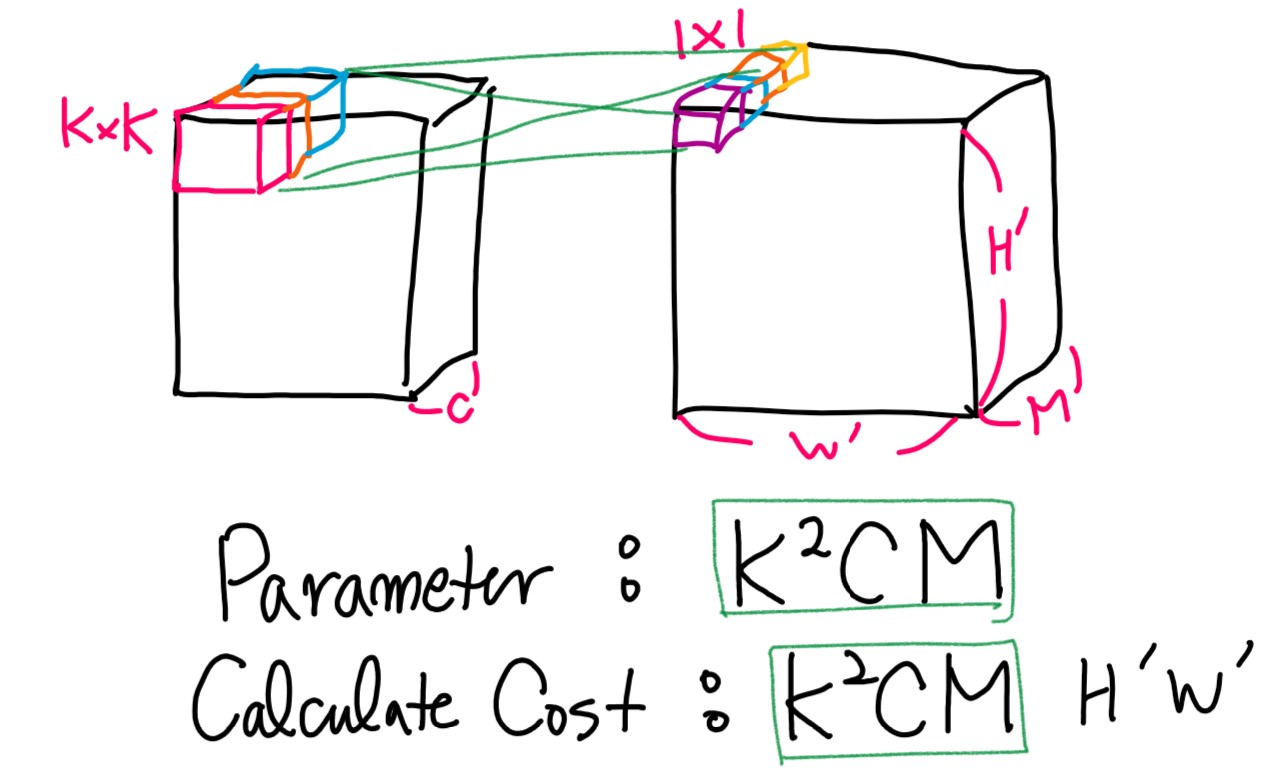 1x1
KxK
H'
C
M
W'
Parameter : K²CM
Calculate Cost : K²CM H'W'